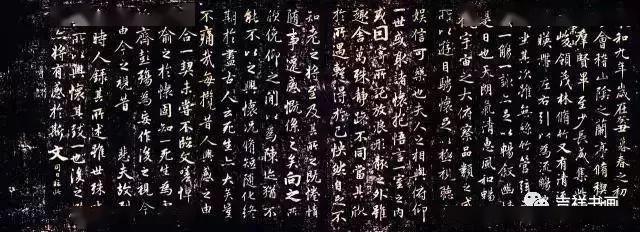 和九年歲在癸丑暮春之初
會稽山陰之蘭亭脩稧
羣賢畢至少長咸集此
峻領茂林脩竹又有清
暎帶左右引以為流觴
坐其次雖無絲竹管弦
一觴一詠亦足以暢叙幽情
是日也天朗氣清惠風和暢
宇宙之大俯察品類之盛
所以遊目騁懷足以極視聽
娛信可樂也夫人之相與俯仰
一世或取諸懷抱悟言一室之內
或因寄所託放浪形骸之外雖
趣舍萬殊靜躁不同當其欣
於所遇蹔得於己怏然自足不
知老之將至及其所之既惓情
隨事遷感慨係之矣向之所
欣俛仰之閒以為陳迹猶不
能不以之興懷況脩短隨化終
期於盡古人云死生亦大矣豈
不痛哉每攬昔人興感之由
合一契未嘗不臨文嗟悼
喻之於懷固知一死生為虛
齊彭殤為妄作後之視今
由今之視昔 悲夫故列
時人錄其所述雖世殊
以興懷其致一也後之
亦將有感於斯文
吉祥书画